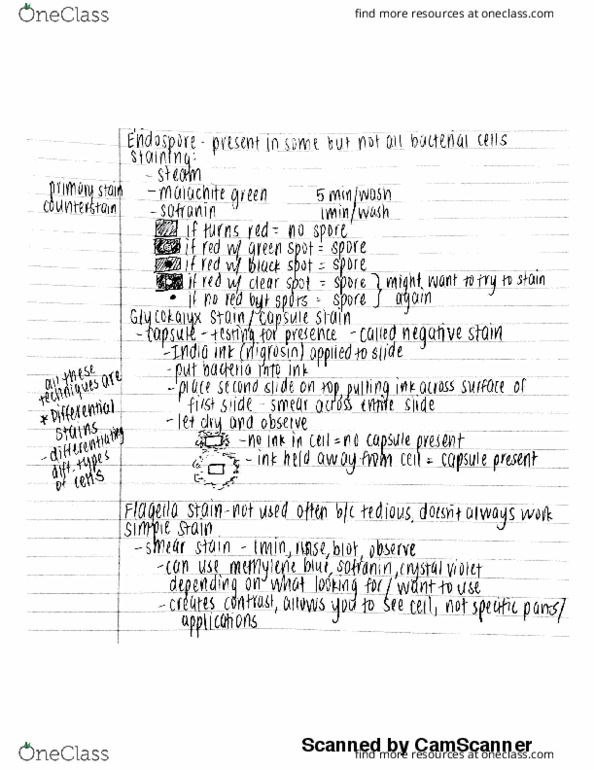 OneClass
find more resources at oneclass.com
Endospore - present in some but not all bacterial cells
staining:
- steam
primary stain - malachite green 5 min/wash
counterstain - safranin 1min/wash
if turns red = no spore
if red w/ green spot = spore
if red w/ black spot = spore
if red w/ clear spot = spore } might want to try to stain
• if no red but spots = spore } again
Glycokalyx stain/capsule stain
- capsule - testing for presence - called negative stain
- India ink (nigrosin) applied to slide
- put bacteria into ink
- place second slide on top pulling ink across surface of
first slide - smear across entire slide
- let dry and observe
- no ink in cell = no capsule present
- ink held away from cell = capsule present
all these
techniques are
* Differential
stains
- differentiating
diff. types
of cells
Flagella stain - not used often b/c tedious, doesn't always work
simple stain
- smear stain - 1min, rinse, blot, observe
- can use methylene blue, safranin, crystal violet
depending on what looking for/want to use
- creates contrast, allows you to see cell, not specific parts/
applications
Scanned by CamScanner
OneClass
find more resources at oneclass.com